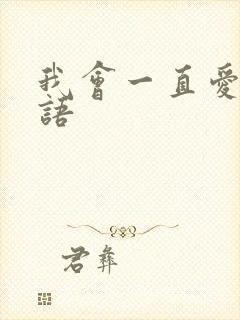 我會一直愛
語
君彝